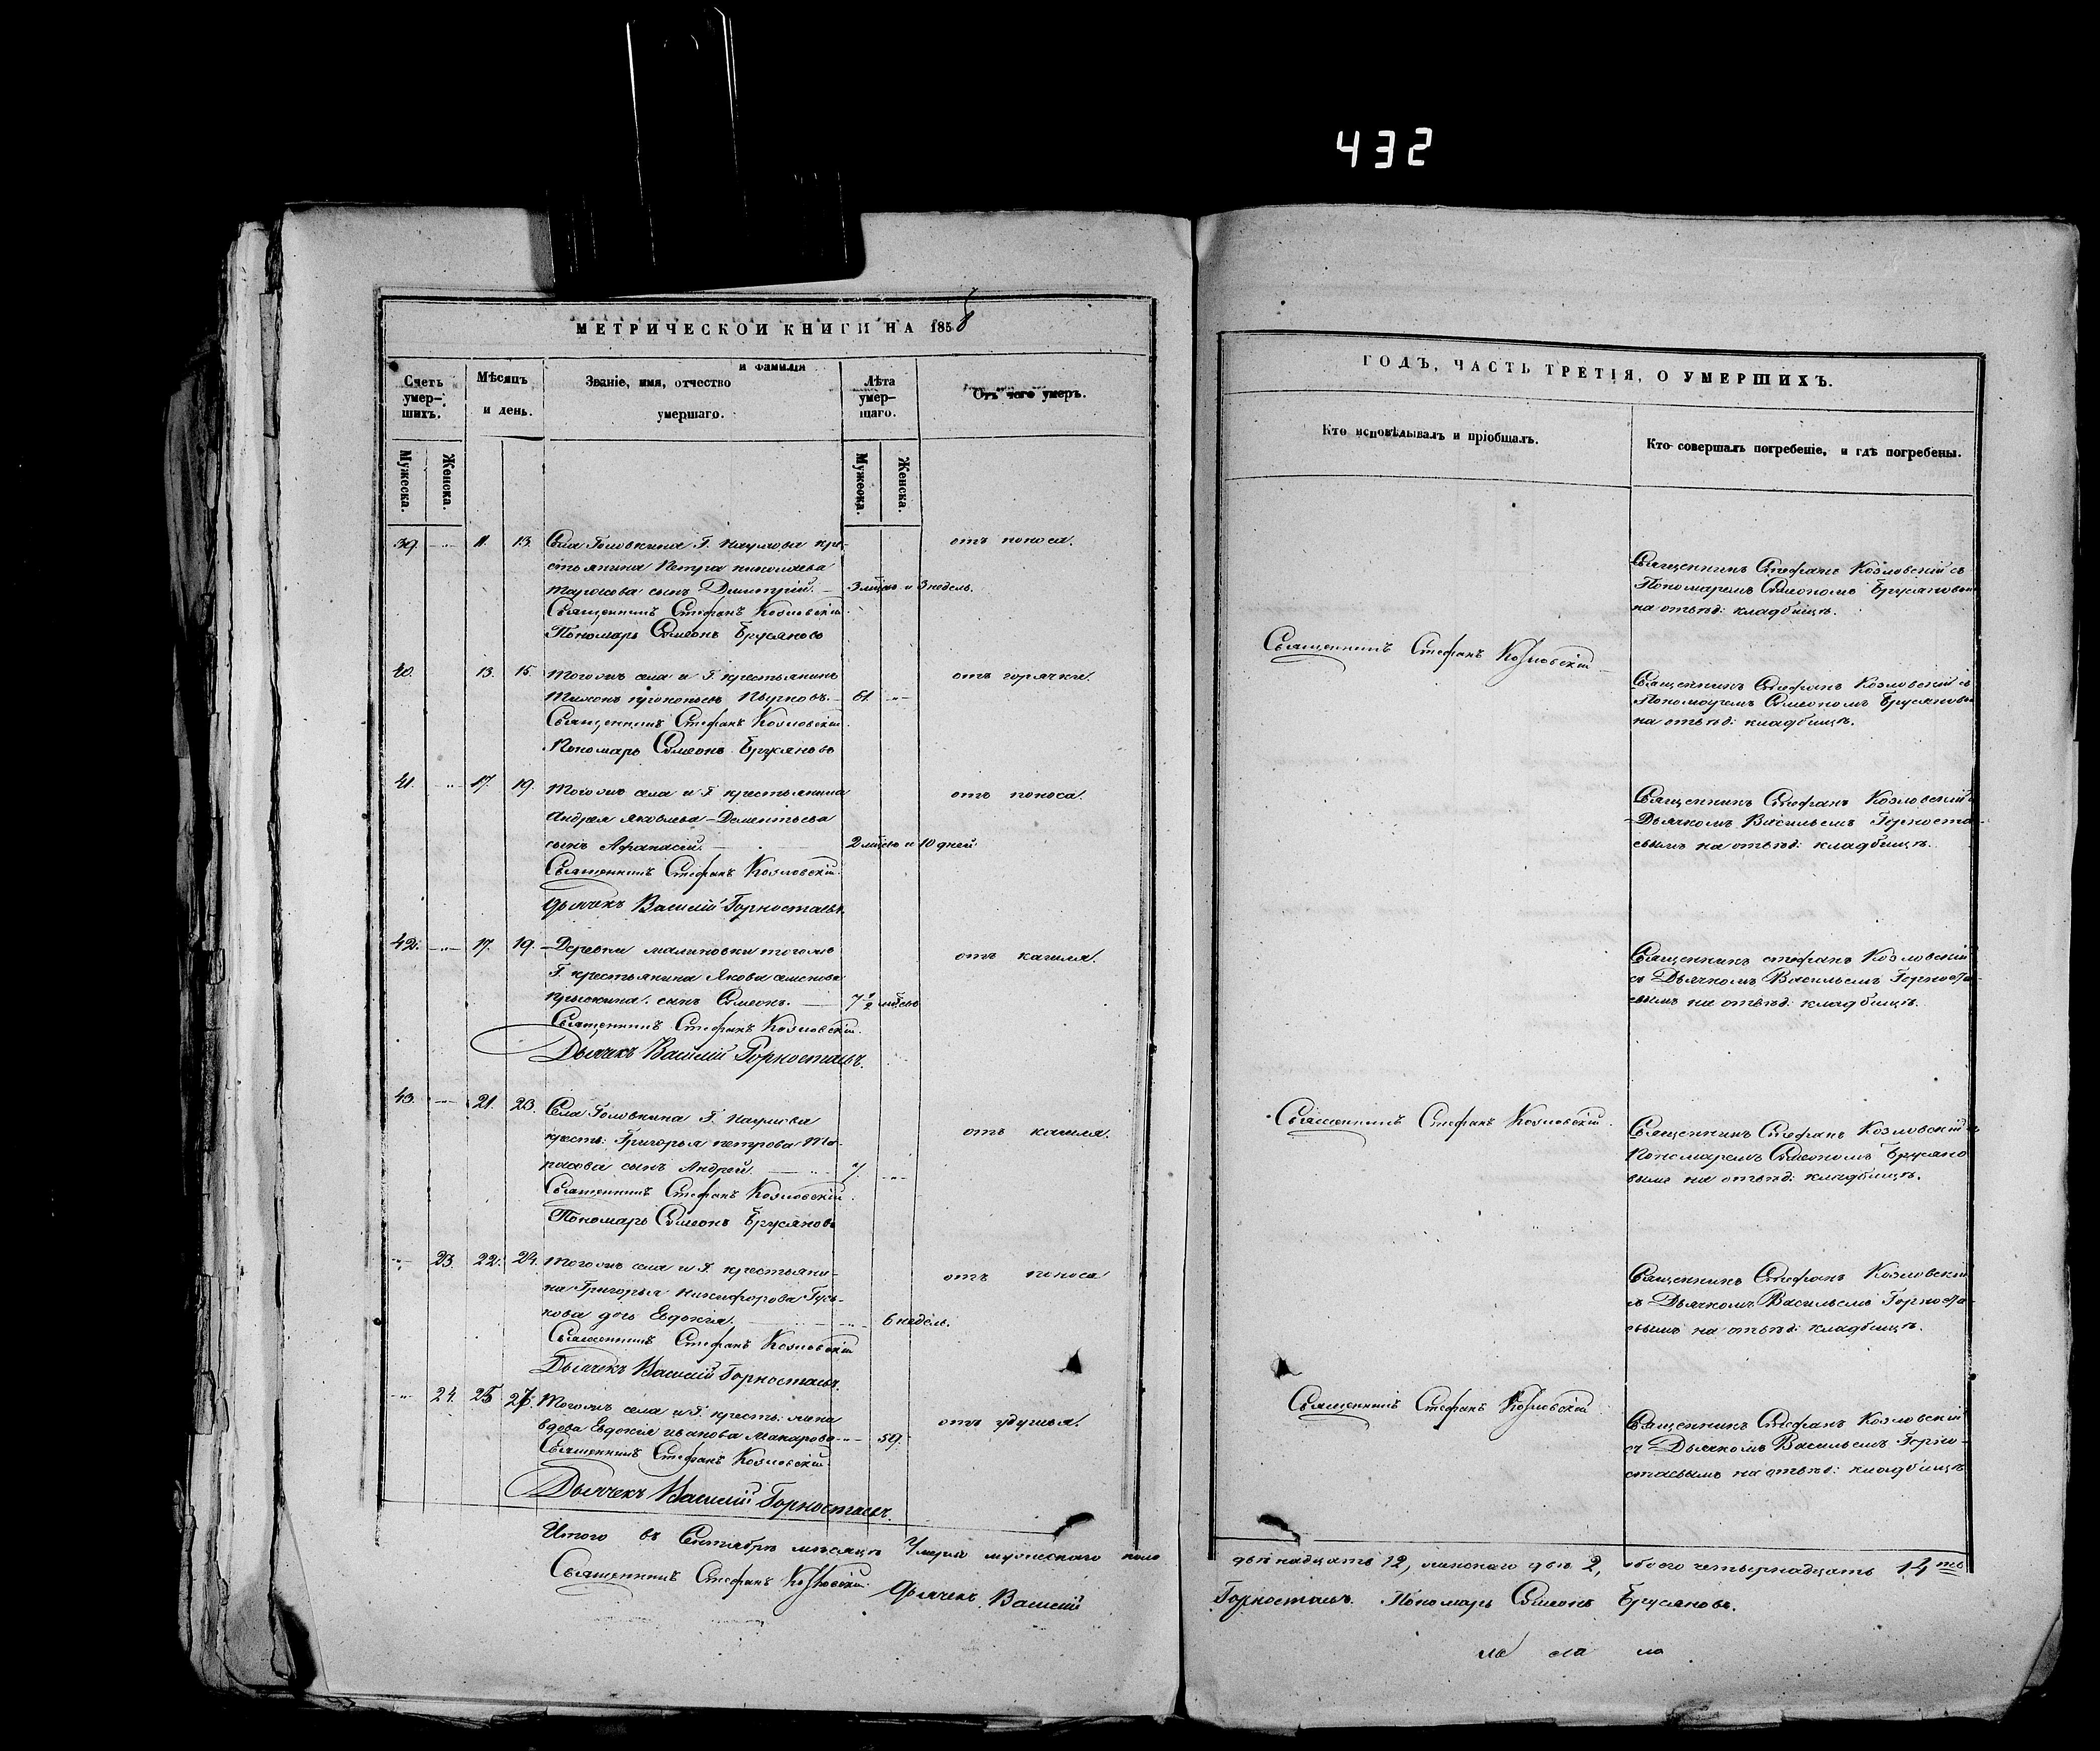 432
МЕТРИЧЕСКОЙ КНИГИ НА 1858
Счетъ умер-шихъ.
Мѣсяцъ и день.
Званіе, имя, отчество и фамилія умершаго.
Лѣта умер-шаго.
Отъ чего умеръ.
Мужеска. Женска.
Мужеска. Женска.
39. 11. 13. Села Головкина Г. Наумова кре- отъ поноса.
стьянина Петра Николаева
Тарасова сынъ Димитрій. 3 мѣсяц и 3 недель.
Священникъ Стефанъ Козловскій
Пономарь Симеонъ Брусяновъ
40. 13. 15. Тогожъ села и Г. крестьянинъ отъ горячки.
Тихонъ 61.
Священникъ Стефанъ Козловскій
Пономарь Симеонъ Брусяновъ
41. 17. 19. Тогожъ села и Г. крестьянина отъ поноса.
Андрея Яковлева Дементьева
сынъ Афанасій. 2 мѣсяц и 10 дней
Священникъ Стефанъ Козловскій.
Дьячекъ Василій Горностаевъ.
42. 17. 19. Деревни Малиновки тогожъ отъ кашля.
Г. крестьянина Якова Семенова
сынъ Симеонъ. 7 1/2 мѣсяц
Священникъ Стефанъ Козловскій.
Дьячекъ Василій Горностаевъ.
43. 21. 23. Села Головкина Г. Наумова отъ кашля.
кресть: Григорья Петрова Та-
расова сынъ Андрей. 7.
Священникъ Стефанъ Козловскій
Пономарь Симеонъ Брусяновъ
23. 22. 24. Тогожъ села и Г. крестьяни- отъ поноса
на Григорья Никифорова Гусь-
кова дочь Евдокия. 6 недель.
Священникъ Стефанъ Козловскій
Дьячекъ Василій Горностаевъ.
24. 25 27. Тогожъ села и Г. кресть: отъ удушья.
вдова Евдокия Иванова Макарова 59.
Священникъ Стефанъ Козловскій
Дьячекъ Василій Горностаевъ.
Итого въ Сентябрѣ мѣсяцѣ умерло мужескаго пола
Священникъ Стефанъ Козловскій Дьячекъ Василій
ГОДЪ, ЧАСТЬ ТРЕТІЯ, О УМЕРШИХЪ.
Кто исповѣдывалъ и пріобщалъ.
Кто совершалъ погребеніе, и гдѣ погребены.
Священникъ Стефанъ Козловскій съ
Пономаремъ Симеономъ Брусяновым
на отвѣд: кладбищѣ.
Священникъ Стефанъ Козловскій
Священникъ Стефанъ Козловскій съ
Пономаремъ Симеономъ Брусяновы
на отвѣд: кладбищѣ.
Священникъ Стефанъ Козловскій
Дьячкомъ Васильемъ Горноста-
евымъ на отвѣд: кладбищѣ.
Священникъ Стефанъ Козловскій
съ Дьячкомъ Васильемъ Горноста-
евымъ на отвѣд: кладбищѣ.
Священникъ Стефанъ Козловскій.
Священникъ Стефанъ Козловскій
Пономаремъ Симеономъ Брусяно
вымъ на отвѣд: кладбищѣ.
Священникъ Стефанъ Козловскій
съ Дьячкомъ Васильемъ Горноста-
евымъ на отвѣд: кладбищѣ.
Священникъ Стефанъ Козловскій
Священникъ Стефанъ Козловскій
съ Дьячкомъ Васильемъ Горно-
стаевымъ на отвѣд: кладбищѣ
двѣнадцать 12, женскаго двѣ 2, обоего четырнадцать 14ть
Горностаевъ. Пономарь Симеонъ Брусяновъ.